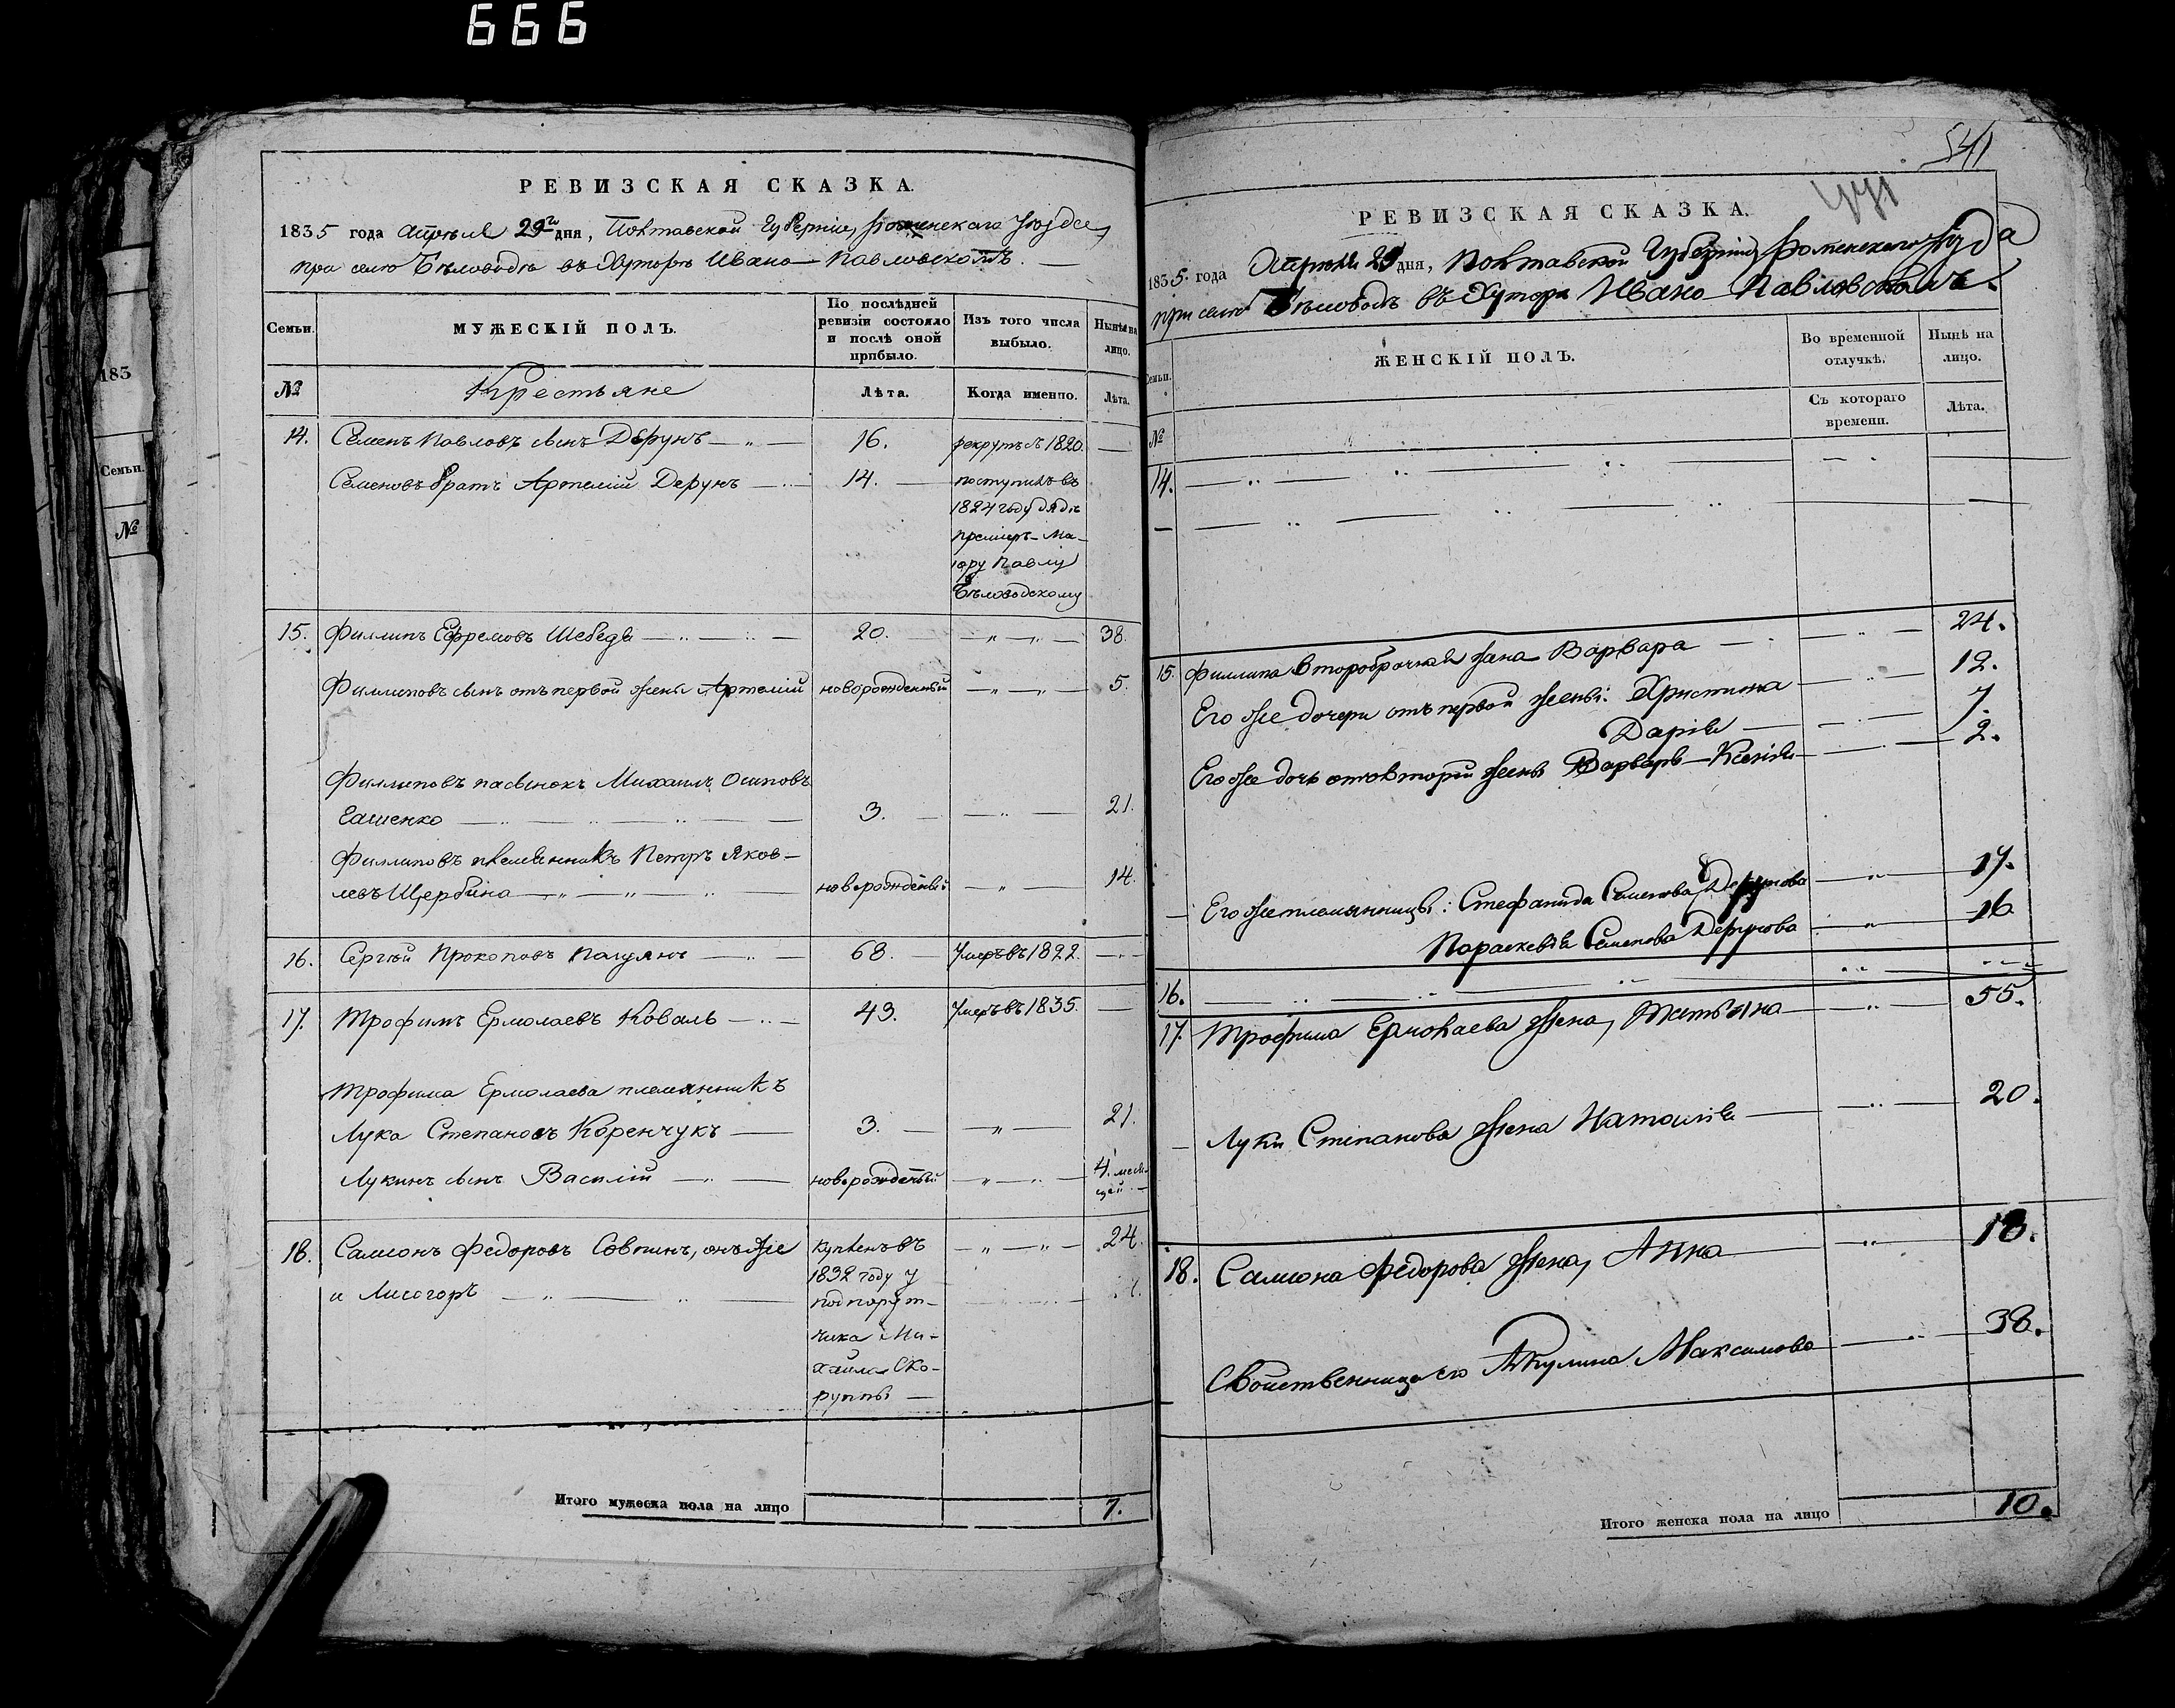 666
РЕВИЗСКАЯ СКАЗКА.
1835 года Апреля 29го дня, Полтавской Губерніи, Роменскаго Уезда,
при селе Беловодѣ въ Хуторѣ Ивано-Павловскомъ.
Семьи.
МУЖЕСКІЙ ПОЛЪ.
По послѣдней ревизіи состояло и послѣ оной прибыло.
Изъ того числа выбыло.
Нынѣ на лицо.
№
Крестьяне
Лѣта.
Когда именно.
Лѣта.
14. Семенъ Павловъ сынъ Дерунъ 16. рекрутъ съ 1820.
Семеновъ братъ Артемій Дерунъ 14. поступилъ въ
1824 году дядѣ
премiеръ-Ма-
іору Павлу
Беловодскому
15. Филипъ Ефремовъ Шебедя 20. 38.
Филиповъ сынъ отъ первой жены Артемій новорожденный 5.
Филиповъ пасынокъ Михаилъ Осиповъ
Гашенко 3. 21.
Филиповъ племянникъ Петръ Яков-
левъ Щербина новорожденный 14.
16. Сергѣй Прокоповъ 68. Умеръ въ 1822.
17. Трофимъ Ермолаевъ Коваль 43. Умеръ въ 1835.
Трофима Ермолаева племянникъ
Лука Степановъ Коренчукъ 3. 21.
Лукинъ сынъ Василій новорожденный 4. меся-
цей
18. Самсонъ Федоровъ Совпинъ, онъ же купленъ въ 24.
и Лисогоръ 1832 году у
подпорут-
чика Ми-
хайла Ско-
руппы
Итого мужеска пола на лицо 7.
541
РЕВИЗСКАЯ СКАЗКА.
1835. года Апреля 29 дня, Полтавской Губерніи, Роменскаго Уезда
при селе Беловодѣ въ Хуторѣ Ивано-Павловскомъ.
Семьи.
ЖЕНСКІЙ ПОЛЪ.
Во временной отлучкѣ.
Нынѣ на лицо.
№
Съ котораго времени.
Лѣта.
14.
15. Филипа второбрачная жена Варвара 24.
Его же дочери отъ первой жены: Христина 12.
Дарія 7.
Его же дочь отъ второй жены Варвары Ксенія 2.
Его же племянницы: Стефанида Семенова Дерунова 17.
Параскевія Семенова Дерунова 16.
16.
17. Трофима Ермолаева жена, Татьяна 55.
Луки Степанова жена Наталія 20.
18. Самсона Федорова жена, Анна 18.
Свойственница его Акулина Максимова 38.
Итого женска пола на лицо 10.
183
Семьи.
№